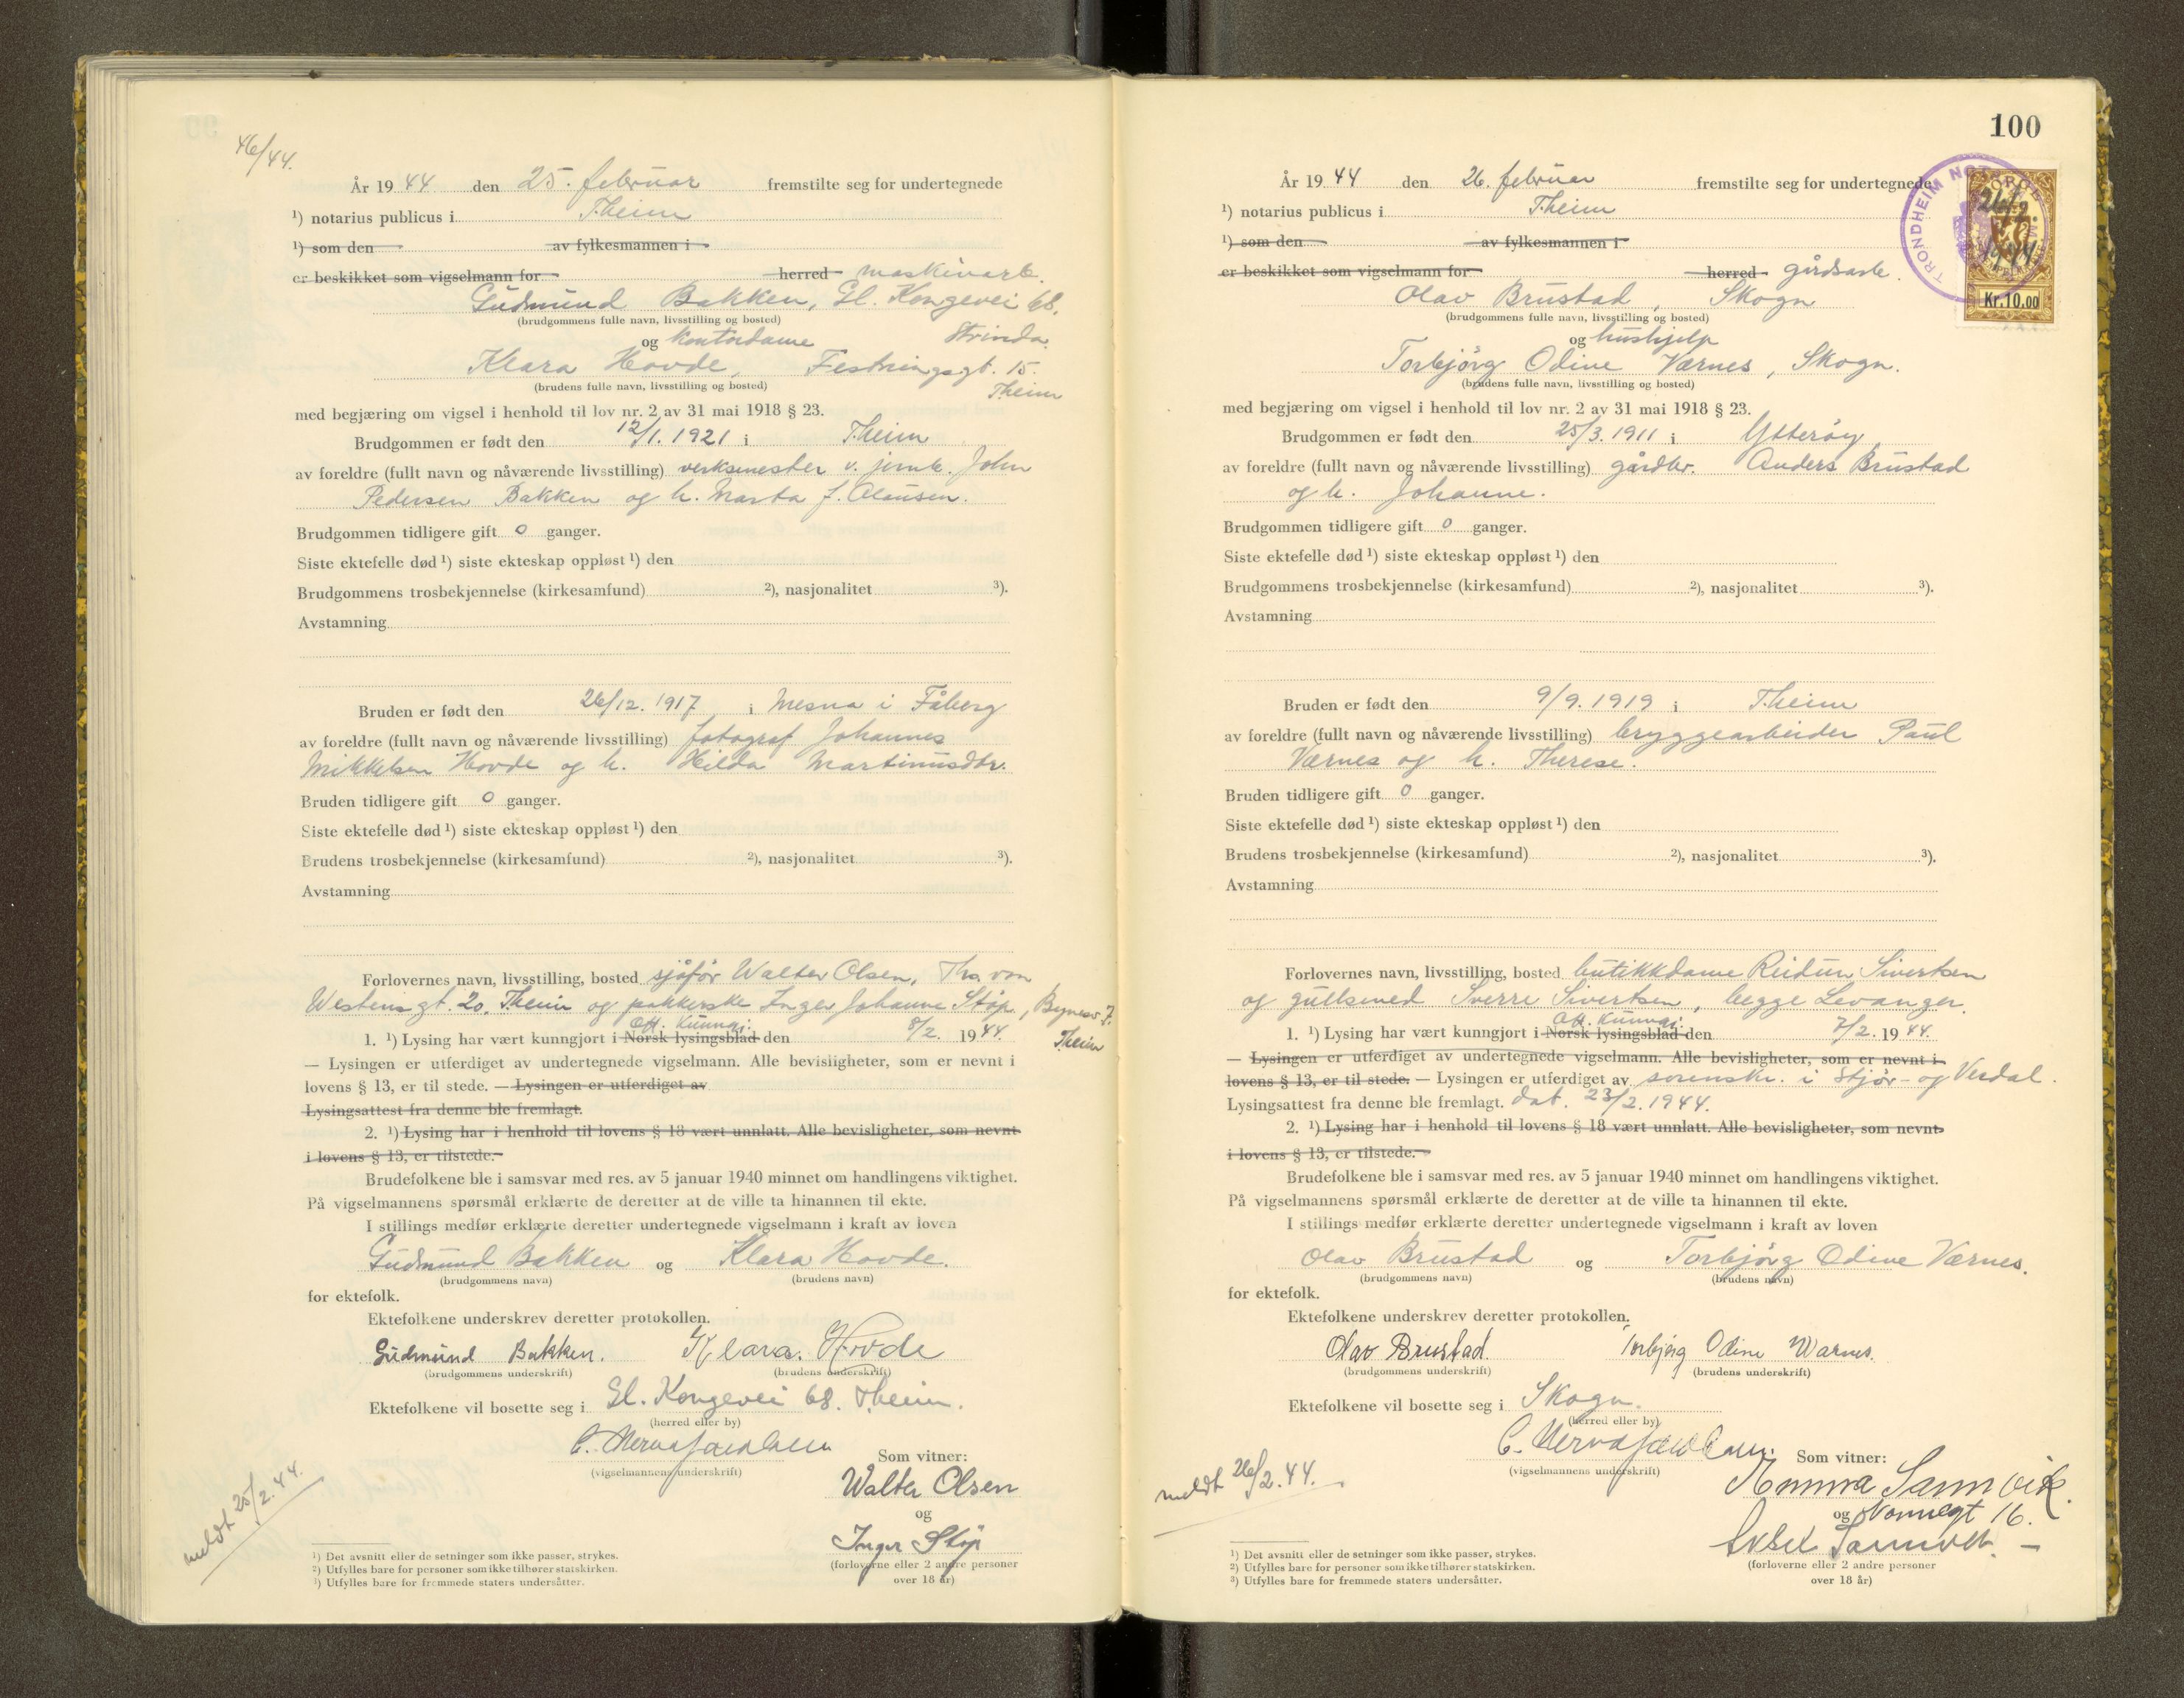 46/44.
År 1944 den 25. februar fremstilte seg for undertegnede
¹) notarius publicus i T.heim
¹) som den av fylkesmannen i
er beskikket som vigselmann for herred maskinarb.
Gudmund Bakken, Gl. Kongevei 68,
(brudgommens fulle navn, livsstilling og bosted)
Strinda.
og kontordame
Klara Hovde, Festningsgt. 15.
T.heim
(brudens fulle navn, livsstilling og bosted)
med begjæring om vigsel i henhold til lov nr. 2 av 31 mai 1918 § 23.
Brudgommen er født den 12/1. 1921 i T.heim
av foreldre (fullt navn og nåværende livsstilling) verksmester v. jernb. John
Pedersen Bakken og h. Marta f. Claussen.
Brudgommen tidligere gift 0 ganger.
Siste ektefelle død ¹) siste ekteskap oppløst ¹) den
Brudgommens trosbekjennelse (kirkesamfund) ²), nasjonalitet ³).
Avstamning
Bruden er født den 26/12. 1917 i Mesna i Fåberg
av foreldre (fullt navn og nåværende livsstilling) fotograf Johannes
Mikkelsen Hovde og h. Hilda Martinusdtr.
Bruden tidligere gift 0 ganger.
Siste ektefelle død ¹) siste ekteskap oppløst ¹) den
Brudens trosbekjennelse (kirkesamfund) ²), nasjonalitet ³).
Avstamning
Forlovernes navn, livsstilling, bosted sjåfør Walter Olsen, Ths. von
Westensgt. 20, T.heim og pakkerske Inger Johanne Støp, Bynesv. 7.
T.heim
Off. kunngj.
1. ¹) Lysing har vært kunngjort i Norsk lysingsblad den 8/2. 1944.
— Lysingen er utferdiget av undertegnede vigselmann. Alle bevisligheter, som er nevnt i
lovens § 13, er til stede. — Lysingen er utferdiget av
Lysingsattest fra denne ble fremlagt.
2. ¹) Lysing har i henhold til lovens § 18 vært unnlatt. Alle bevisligheter, som nevnt
i lovens § 13, er tilstede.
Brudefolkene ble i samsvar med res. av 5 januar 1940 minnet om handlingens viktighet.
På vigselmannens spørsmål erklærte de deretter at de ville ta hinannen til ekte.
I stillings medfør erklærte deretter undertegnede vigselmann i kraft av loven
Gudmund Bakken og Klara Hovde.
(brudgommens navn) (brudens navn)
for ektefolk.
Ektefolkene underskrev deretter protokollen.
Gudmund Bakken. Klara. Hovde
(brudgommens underskrift) (brudens underskrift)
Ektefolkene vil bosette seg i Gl. Kongevei 68. T.heim.
(herred eller by)
(vigselmannens underskrift)
Som vitner:
Walter Olsen
og
Inger Støp
(forloverne eller 2 andre personer
over 18 år)
meldt 25/2. 44.
¹) Det avsnitt eller de setninger som ikke passer, strykes.
²) Utfylles bare for personer som ikke tilhører statskirken.
³) Utfylles bare for fremmede staters undersåtter.
100
År 1944 den 26. februar fremstilte seg for undertegnede
¹) notarius publicus i T.heim
¹) som den av fylkesmannen i
er beskikket som vigselmann for herred gårdsarb.
Olav Brustad, Skogn
(brudgommens fulle navn, livsstilling og bosted)
og hushjelp
Torbjörg Odine Værnes, Skogn.
(brudens fulle navn, livsstilling og bosted)
TRONDHEIM NOT
NORGE
26/2.
1944
Kr.10.00
med begjæring om vigsel i henhold til lov nr. 2 av 31 mai 1918 § 23.
Brudgommen er født den 25/3. 1911 i Ytteröy
av foreldre (fullt navn og nåværende livsstilling) gårdbr. Anders Brustad
og h. Johanne.
Brudgommen tidligere gift 0 ganger.
Siste ektefelle død ¹) siste ekteskap oppløst ¹) den
Brudgommens trosbekjennelse (kirkesamfund) ²), nasjonalitet ³).
Avstamning
Bruden er født den 9/9. 1919 i T.heim
av foreldre (fullt navn og nåværende livsstilling) bryggearbeider Paul
Værnes og h. Therese.
Bruden tidligere gift 0 ganger.
Siste ektefelle død ¹) siste ekteskap oppløst ¹) den
Brudens trosbekjennelse (kirkesamfund) ²), nasjonalitet ³).
Avstamning
Forlovernes navn, livsstilling, bosted butikkdame Reidun Sivertsen
og gullsmed Sverre Sivertsen, begge Levanger.
Off. kunngj.
1. ¹) Lysing har vært kunngjort i Norsk lysingsblad den 7/2. 1944.
— Lysingen er utferdiget av undertegnede vigselmann. Alle bevisligheter, som er nevnt i
lovens § 13, er til stede. — Lysingen er utferdiget av sorenskr. i Stjör- og Verdal.
Lysingsattest fra denne ble fremlagt. dat. 23/2. 1944.
2. ¹) Lysing har i henhold til lovens § 18 vært unnlatt. Alle bevisligheter, som nevnt
i lovens § 13, er tilstede.
Brudefolkene ble i samsvar med res. av 5 januar 1940 minnet om handlingens viktighet.
På vigselmannens spørsmål erklærte de deretter at de ville ta hinannen til ekte.
I stillings medfør erklærte deretter undertegnede vigselmann i kraft av loven
Olav Brustad og Torbjörg Odine Værnes.
(brudgommens navn) (brudens navn)
for ektefolk.
Ektefolkene underskrev deretter protokollen.
Olav Brustad. Torbjørg Odine Værnes.
(brudgommens underskrift) (brudens underskrift)
Ektefolkene vil bosette seg i Skogn.
(herred eller by)
(vigselmannens underskrift)
Som vitner:
og Nonnegt 16.
(forloverne eller 2 andre personer
over 18 år)
meldt 26/2. 44.
¹) Det avsnitt eller de setninger som ikke passer, strykes.
²) Utfylles bare for personer som ikke tilhører statskirken.
³) Utfylles bare for fremmede staters undersåtter.